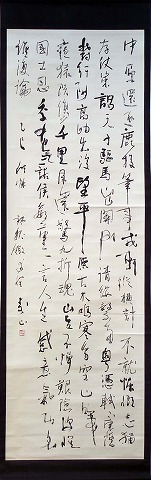 中原還逐鹿投筆事戎軒縱橫計不就慷慨志猶
存杖策謁天子驅馬出關門請纓繫南粵憑軾下東藩
鬱紆陟高岫出沒望平原古木鳴寒鳥空山啼夜
猿既傷千里目還驚九折魂豈不憚艱險深懷
國士恩季布無二諾侯嬴重一言人生感意氣功名
誰復論